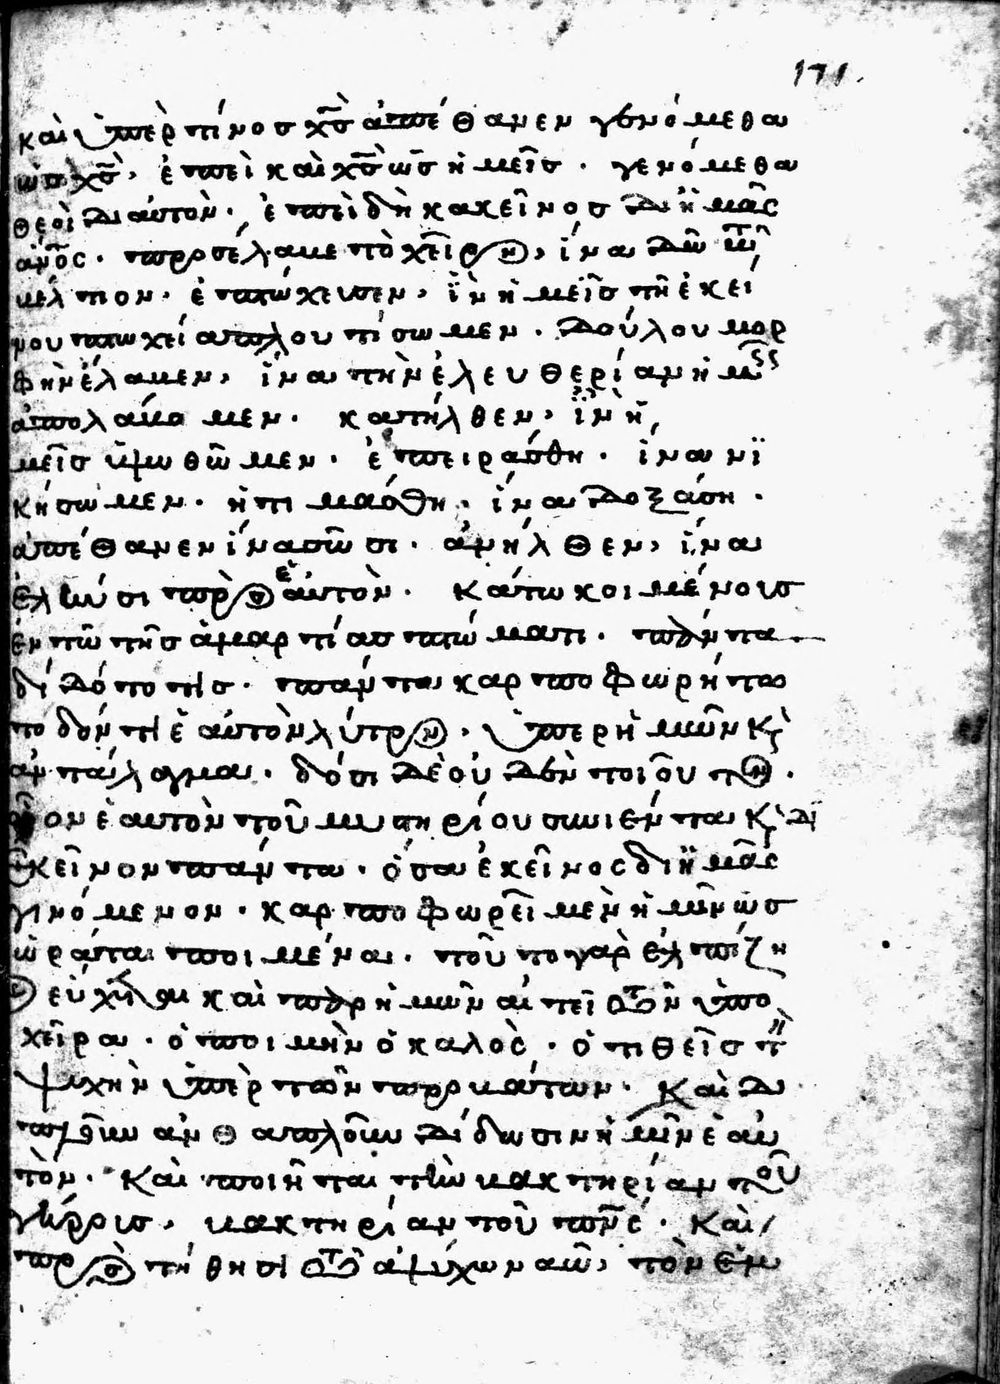 καὶ ὑπὲρ τίνοσ χ̅σ̅ ἀπέθανεν γενόμεθα
ὡσ χ̅σ̅, ἐπεὶ καὶ χ̅σ̅ ὡσ ἡμεῖσ · γενόμεθα
θεοὶ διαὐτὸν · ἐπεὶ δὴ κακεῖνοσ δι ἡμᾶς
ἀν̅ο̅ς · προσέλαβε τὸ χεῖρον, ἵνα δῶ τῶ
βέλτιον · ἐπτώχευσεν, ἵν ἡμεῖσ τῆ ἐκεί
νου πτωχεία πλουτίσωμεν · δούλου μορ
φὴν ἔλαβεν, ἵνα τὴν ἐλευθερίαν ἡμῶν
ἀπολάβωμεν · κατῆλθεν, ἵν ἡ
μεῖσ ὑψωθῶμεν · ἐπειράσθη · ἵνα νι
κήσωμεν · ἠτιμάσθη · ἵνα δοξάση ·
ἀπέθανεν ἵνα σώσι · ἀνῆλθεν, ἵνα
ἑλκύσι πρὸσ ἑαὐτὸν · κάτω κοιμένουσ
ἐν τῶ τῆσ ἁμαρτίασ πτώματι · πάντα
διδότο τίσ · πάντα καρποφωρήτω
το δόντι ἑαὐτὸν λύτρον · ὑπερ ἡμῶν κ̀
ἀντάλαγμα · δόσι δὲ οὐδὲν τοιοῦτον ·
οἷον ἑαυτὸν τοῦ μυστηρίου συνιέντα κ̀ δι
ἐκεῖνον πάντα · ὅσα ἐκεῖνος δι ἡμᾶς
γινόμενον · καρποφωρεῖ μὲν ἡμῖν ὡσ
ὡράται ποιμένα · τοῦτο γὰρ ἐλπίζη
κ̀ εὐχεται καὶ παρ ἡμῶν αἰτεῖ τῶν ὑπο
χεῖρα · ὁ ποιμὴν ὁ καλὸς · ὁ τιθεῖσ τὴν
ψυχὴν ὑπὲρ τῶν προβάτων · Καὶ δι
πλοῦν ἀνθ απλοῦν δίδωσιν ἡμῖν ἑαυ
τὸν · Καὶ ποιῆται τὴν βακτηρίαν τοῦ
γήρρισ, βακτηρίαν τοῦ πν̅ς · Καὶ
προστίθησι τῶ ἀψύχω ναῶ, τὸν ἔμψυ